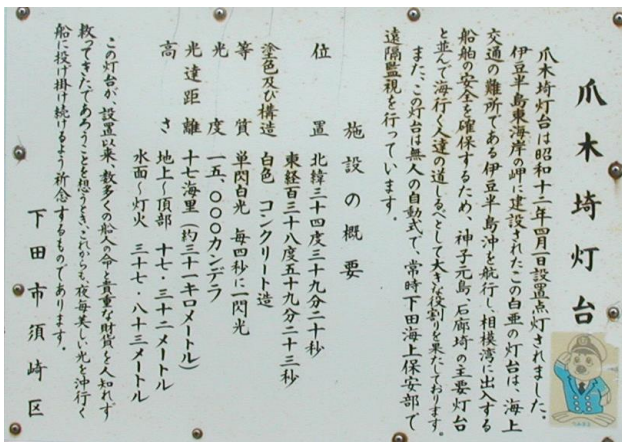 爪木埼灯台
爪木埼灯台は昭和十二年四月一日設置点灯されました。
伊豆半島東海岸の岬に建設されたこの白亜の灯台は、海上
交通の難所である伊豆半島沖を航行し、相模湾に出入する
船舶の安全を確保するため、神子元島、石廊埼の主要灯台
と並んで海行く人達の道しるべとして大きな役割を果たしております。
また、この灯台は無人の自動式で、常時下田海上保安部で
遠隔監視を行っています。
施設の概要
位置 北緯三十四度三十九分二十秒
東経百三十八度五十九分二十三秒
塗色及び構造 白色 コンクリート造
等質 単閃白光 毎四秒に一閃光
光度 一五、〇〇〇カンデラ
光達距離 十七海里(約三十一キロメートル)
高さ 地上〜頂部 十七・三十二メートル
水面〜灯火 三十七・八十三メートル
この灯台が、設置以来、数多くの船人の命と貴重な財貨を人知れず
救ってきたであろうことを想うとき、これからも、夜毎美しい光を沖行く
船に投げ掛け続けるよう祈念するものであります。
下田市須崎区